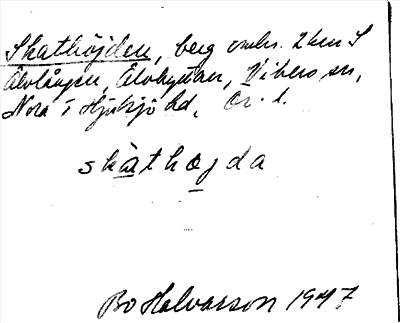 Skathöjden, berg omkr. 2 km S
Älvlången, Älvhyttan, Vikers sn,
Nora o Hjulsjö hd, Ör. l.
skathøjda
Bo Halvarson 1947